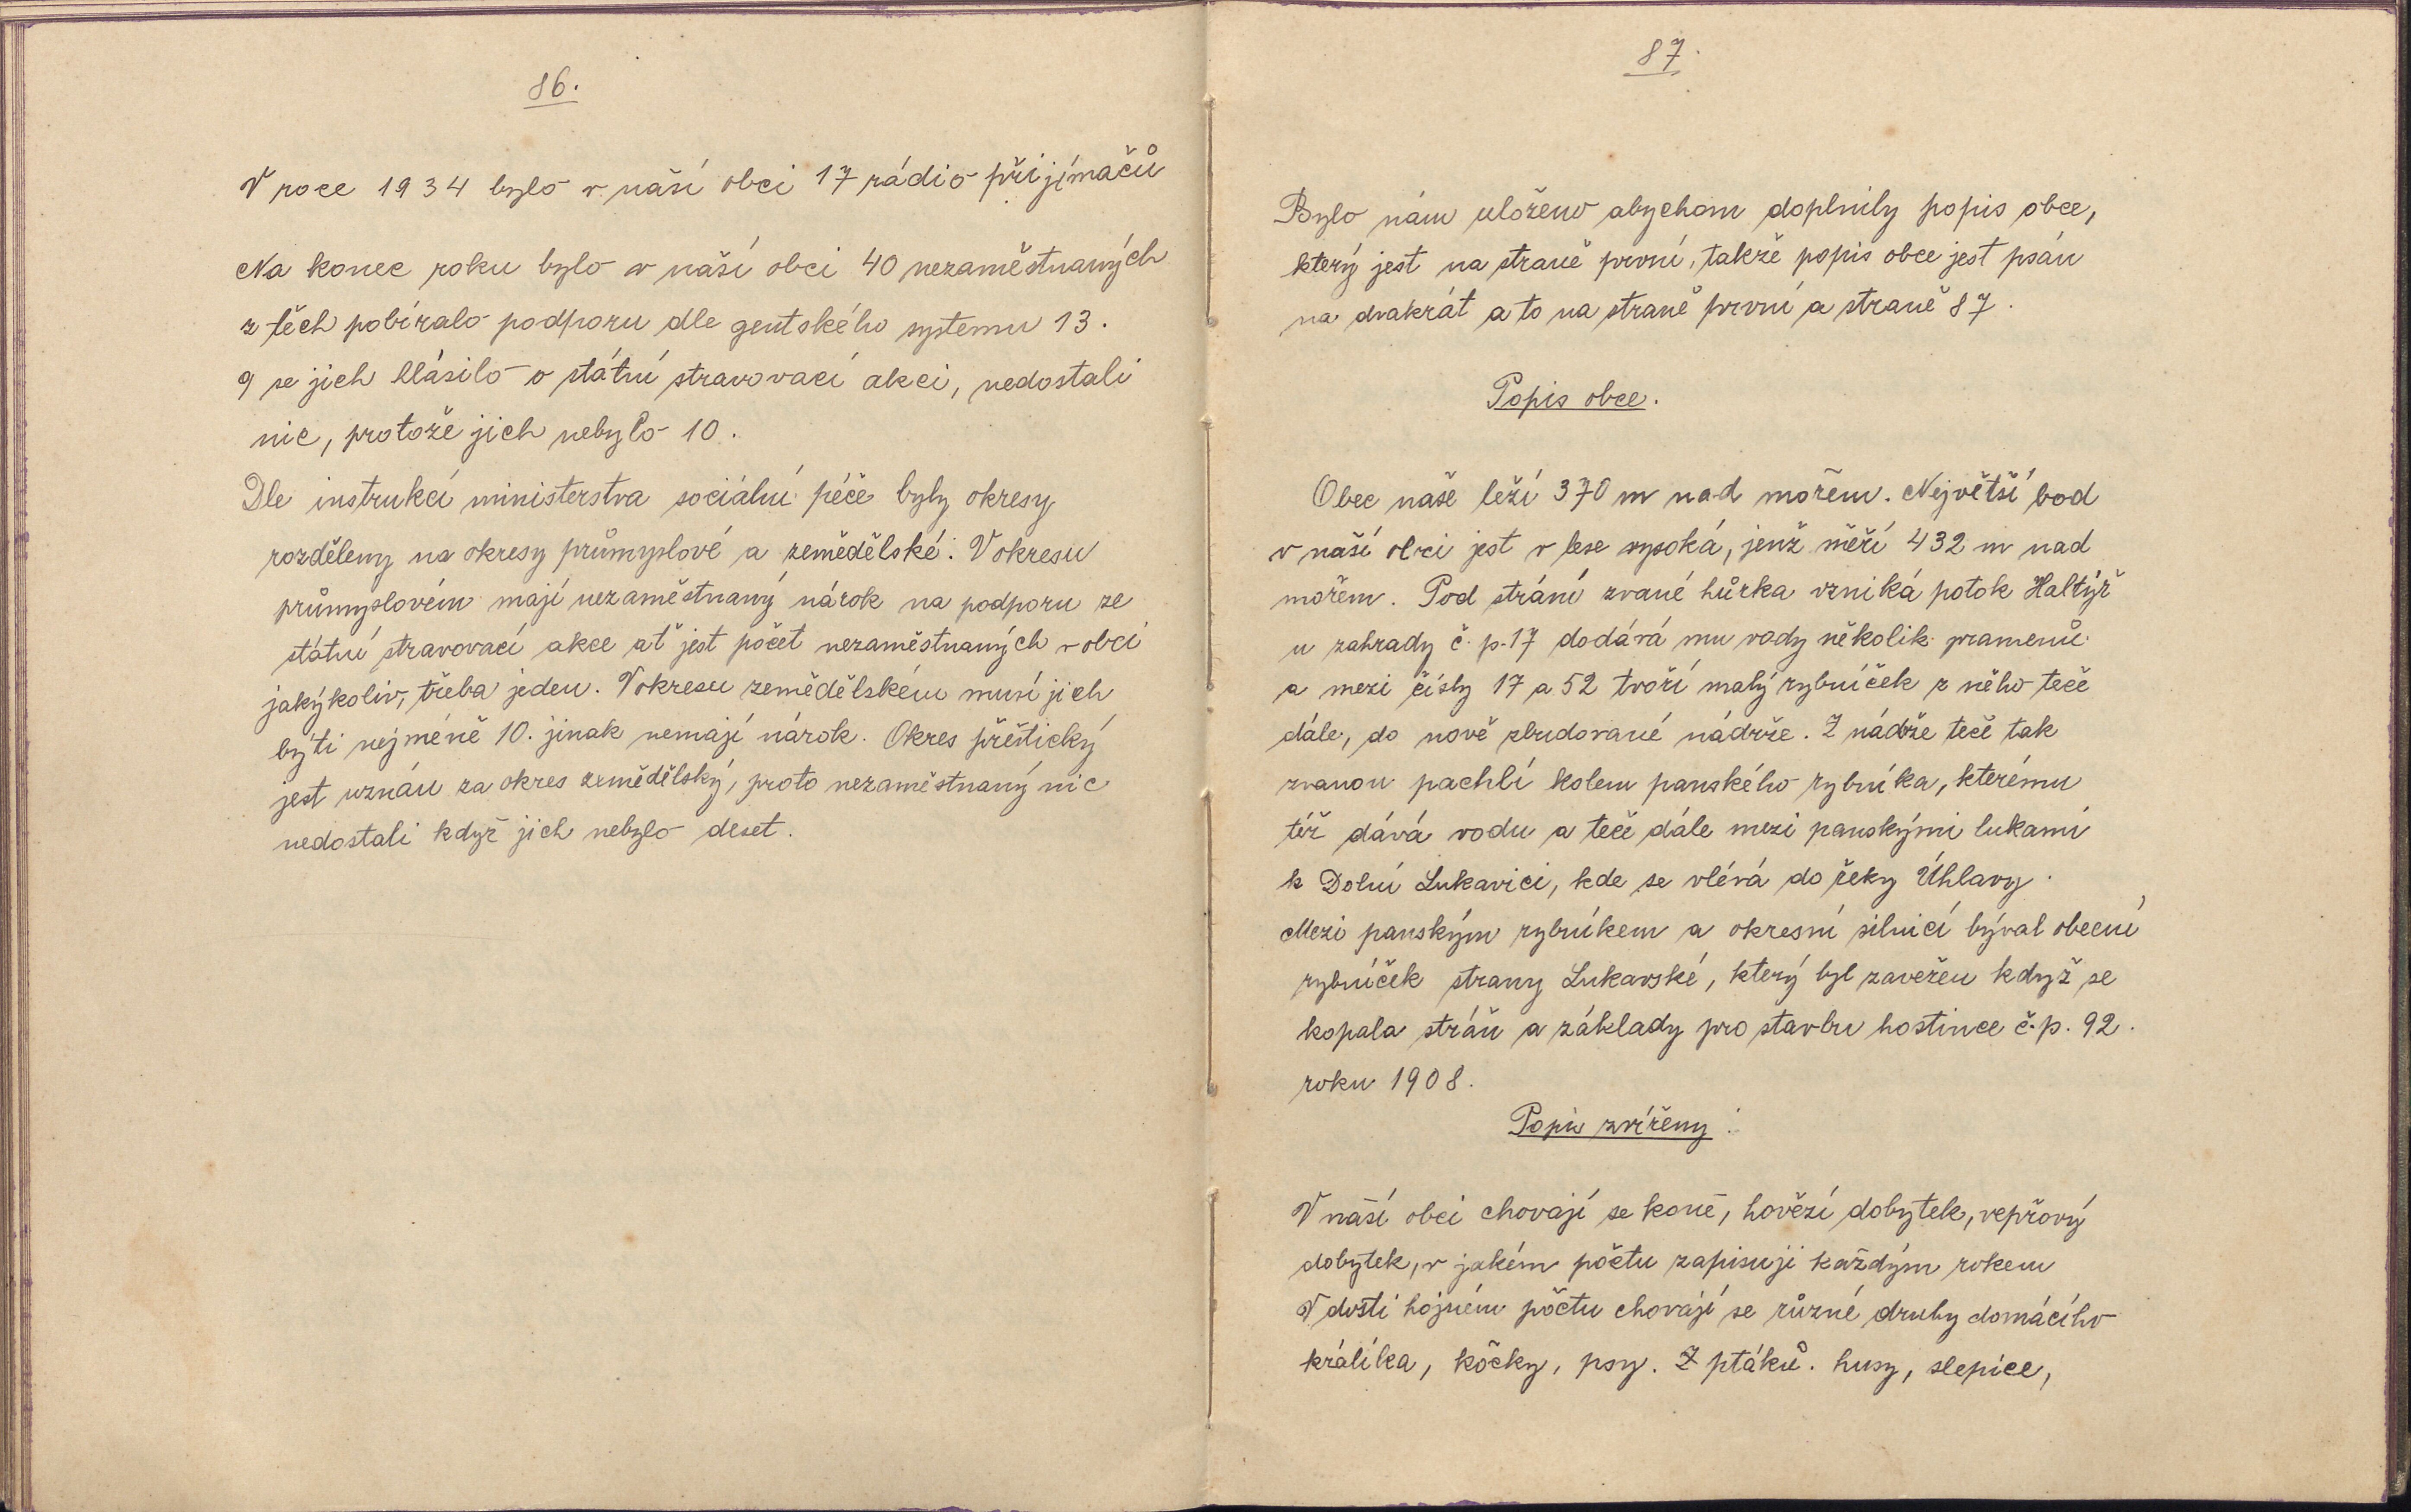 86.
V roce 1934 bylo v naší obci 17 rádio přijímačů
Na konec roku bylo v naší obci 40 nezaměstnaných
z těch pobíralo podporu dle gentského systemu 13.
9 se jich hlásilo o státní stravovací akci, nedostali
nic, protože jich nebylo 10.
Dle instrukcí ministerstva sociální péče byly okresy
rozděleny na okresy průmyslové a zemědělské. V okresu
průmyslovém mají nezaměstnaný nárok na podporu ze
státní stravovací akce ať jest počet nezaměstnaných v obci
jakýkoliv, třeba jeden. V okresu zemědělském musí jich
býti nejméně 10. jinak nemají nárok. Okres přeštický
jest uznán za okres zemědělský, proto nezaměstnaný nic
nedostali když jich nebylo deset.
87.
Bylo nám uloženo abychom doplnily popis obce,
který jest na straně první, takže popis obce jest psán
na dvakrát a to na straně první a straně 87.
Popis obce.
Obec naše leží 370 m nad mořem. Největší bod
v naší obci jest v lese vysoká, jenž měří 432 m nad
mořem. Pod strání zvané hůrka vzniká potok Haltýř
u zahrady č. p. 17 dodává mu vody několik pramenů
a mezi čísly 17 a 52 tvoří malý rybníček z něho teče
dále, do nově zbudované nádrže. Z nádrže teče tak
zvanou pachlí kolem panského rybníka, kterému
též dává vodu a teče dále mezi panskými lukami
k Dolní Lukavici, kde se vlévá do řeky Úhlavy.
Mezi panským rybníkem a okresní silnicí býval obecní
rybníček strany Lukavské, který byl zavežen když se
kopala stráň a základy pro stavbu hostince č. p. 92.
roku 1908.
Popis zvířeny:
V naší obci chovají se koně, hovězí dobytek, vepřový
dobytek, v jakém počtu zapisuji každým rokem
V dosti hojném počtu chovají se různé druhy domácího
králíka, kočky, psy. Z ptáků. husy, slepice,